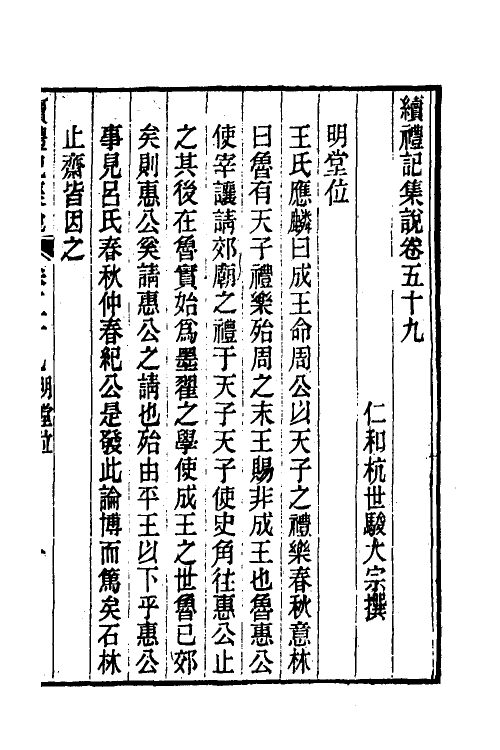 續禮記集說卷五十九
仁和杭世駿大宗撰
明堂位
王氏應麟曰成王命周公以天子之禮樂春秋意林
曰魯有天子禮樂殆周之末王賜非成王也魯惠公
使宰讓請郊廟之禮于天子天子使史角往惠公止
之其後在魯實始爲墨翟之學使成王之世魯已郊
矣則惠公奚請惠公之請也殆由平王以下乎惠公
事見呂氏春秋仲春紀公是發此論博而篤矣石林
止齋皆因之
明堂位